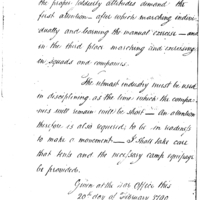 the proper soldierly attitudes demand the
first attention — after which marching individ-
ually and learning the manual exercise — and
in the third place marching and exercising
in squads and companies.
The utmost industry must be used
in disciplining as the time which the compa-
nies will remain will be short — An attention
therefore is also required to be in readiness
to make a movement — I shall take care
that tents and the necessary camp equipage
be provided.
Given at the War Office this
20th day of February 1790